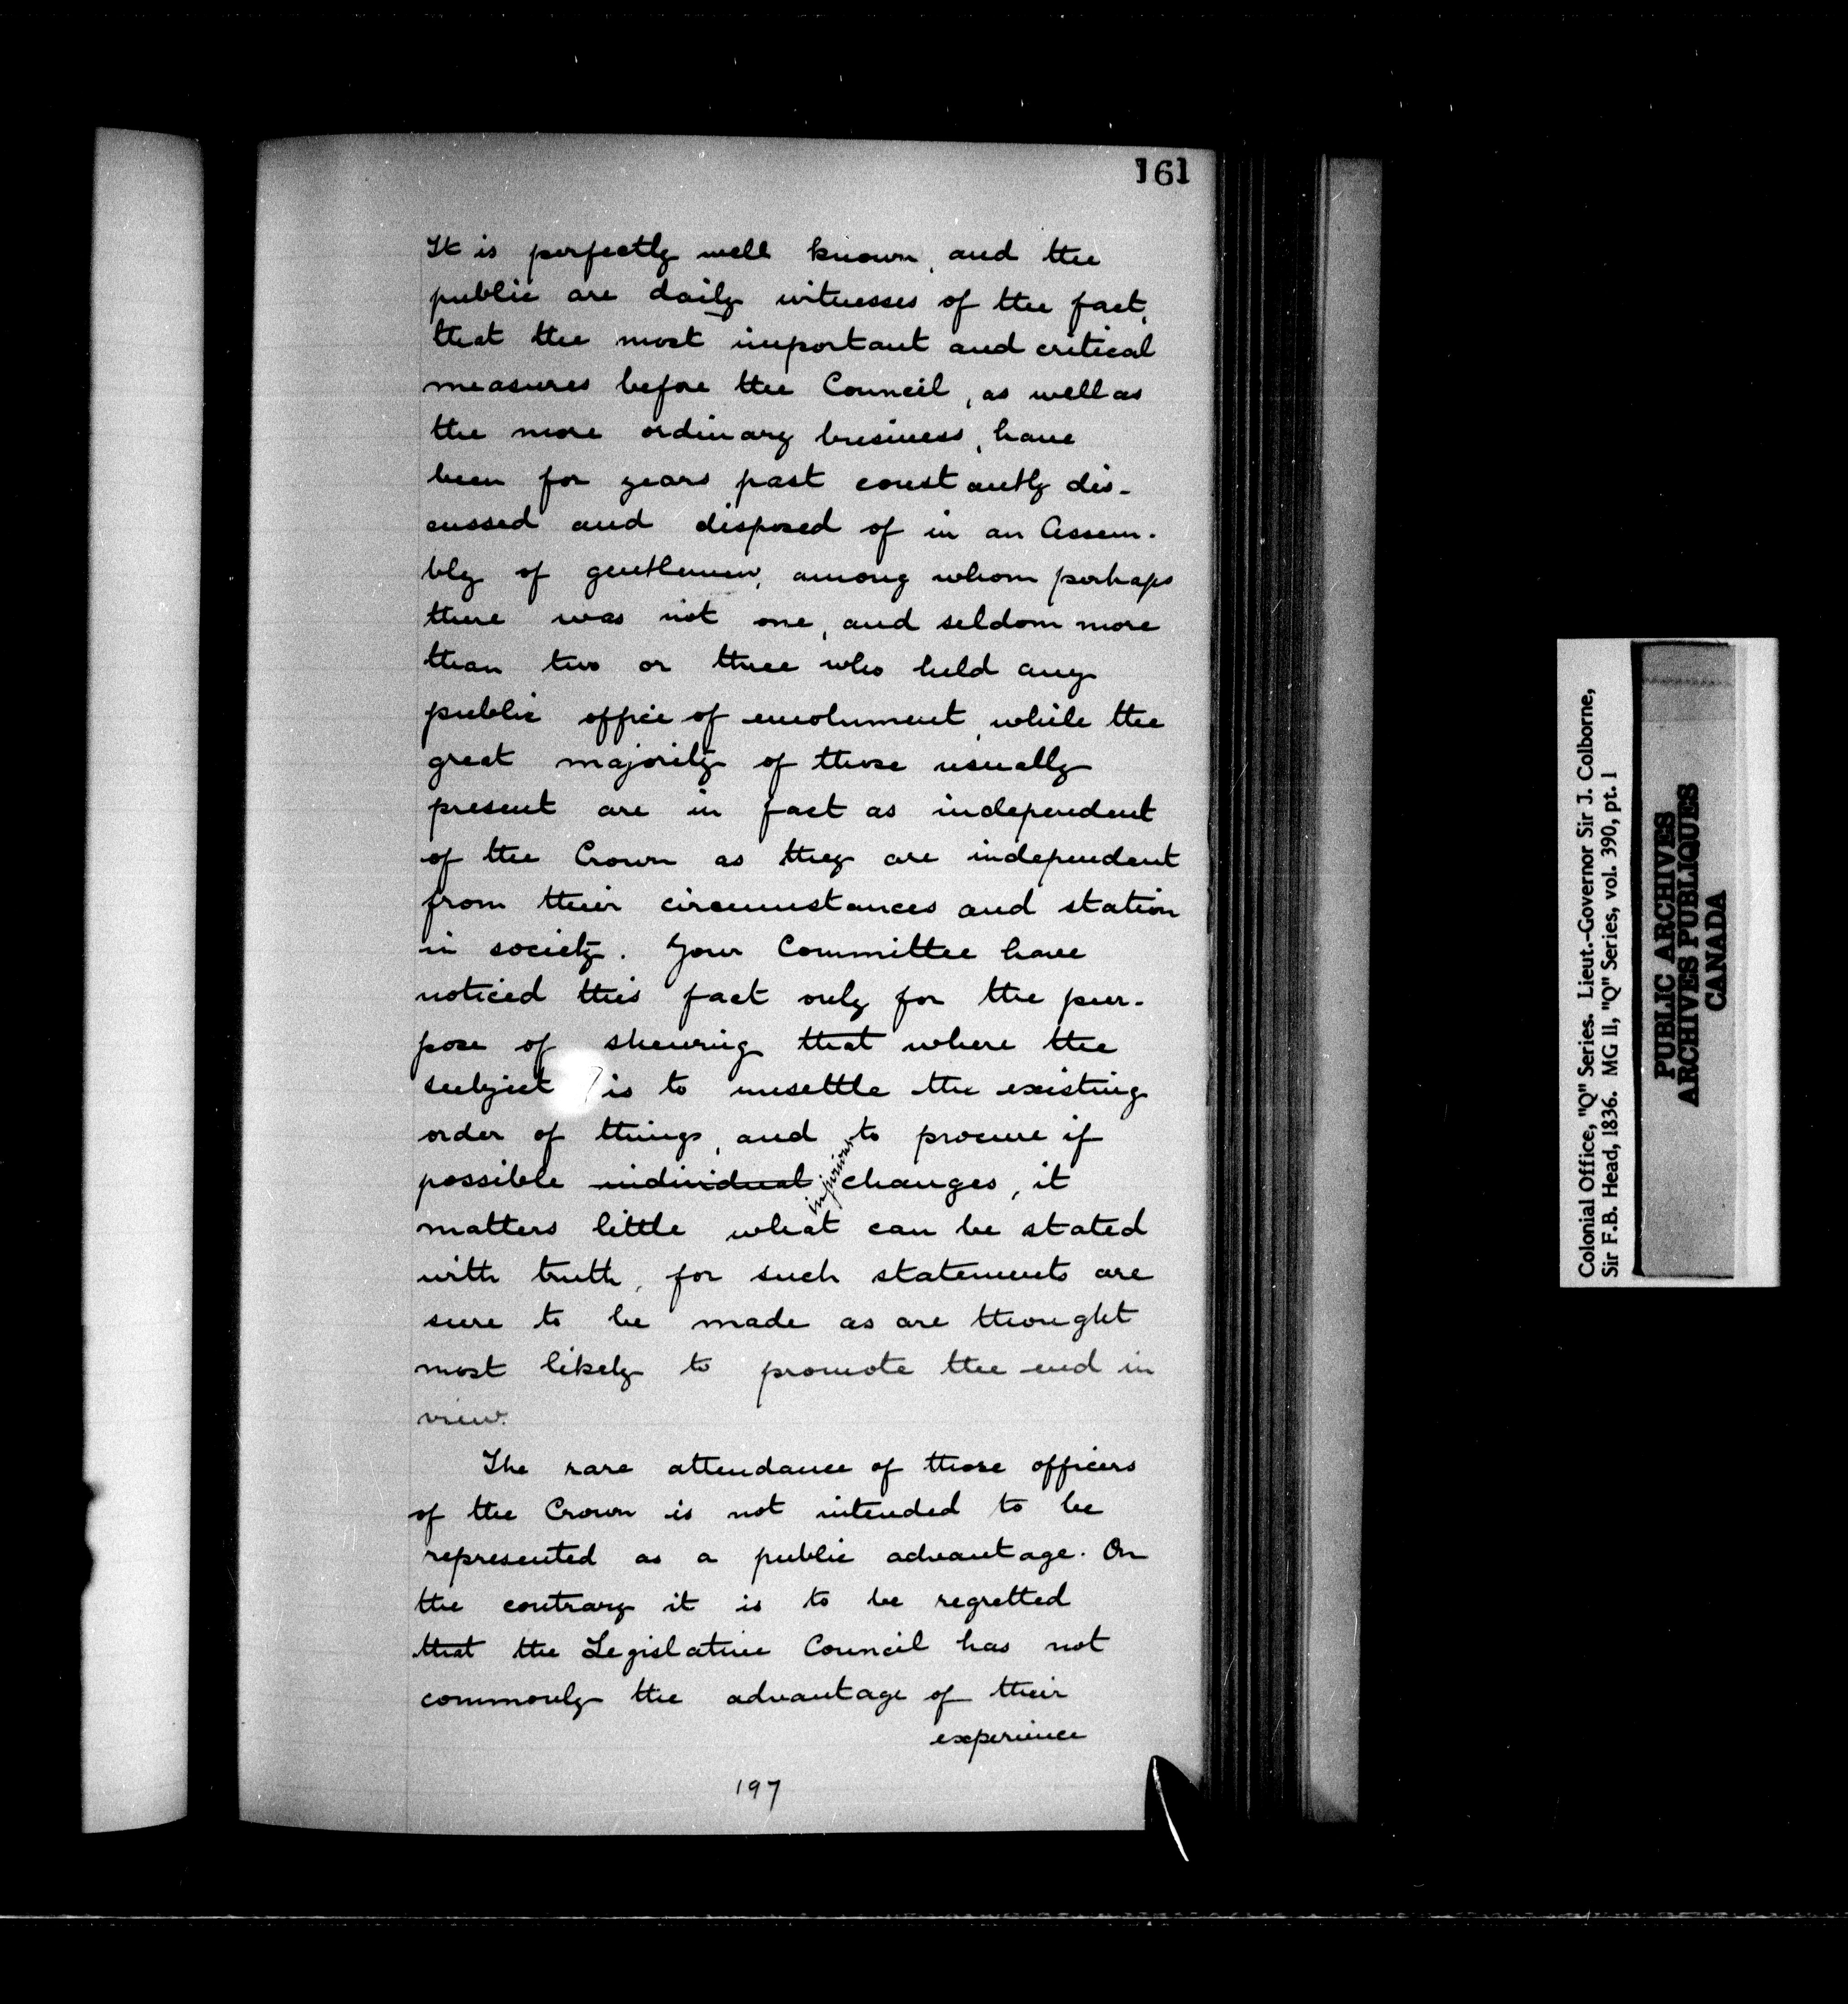 161
It is perfectly well known, and the
public are daily witnesses of the fact,
that the most important and critical
measures before the Council, as well as
the more ordinary business, have
been for years past constantly dis-
cussed and disposed of in an Assem-
bly of gentlemen, among whom perhaps
there was not one, and seldom more
than two or three who held any
public office of emolument, while the
great majority of those usually
present are in fact as independent
of the Crown as they are independent
from their circumstances and station
in society. Your Committee have
noticed this fact only for the pur-
pose of shewing that where the
subject ? is to unsettle the existing
order of things, and to procure if
possible individual injurious changes, it
matters little what can be stated
with truth, for such statements are
sure to be made as are thought
most likely to promote the end in
view.
The rare attendance of those officers
of the Crown is not intended to be
represented as a public advantage. On
the contrary it is to be regretted
that the Legislative Council has not
commonly the advantage of their
experience
197
Colonial Office, "Q" Series. Lieut.-Governor Sir J. Colborne,
Sir F.B. Head, 1836. MG 11, "Q" Series, vol. 390, pt. 1
PUBLIC ARCHIVES
ARCHIVES PUBLIQUES
CANADA